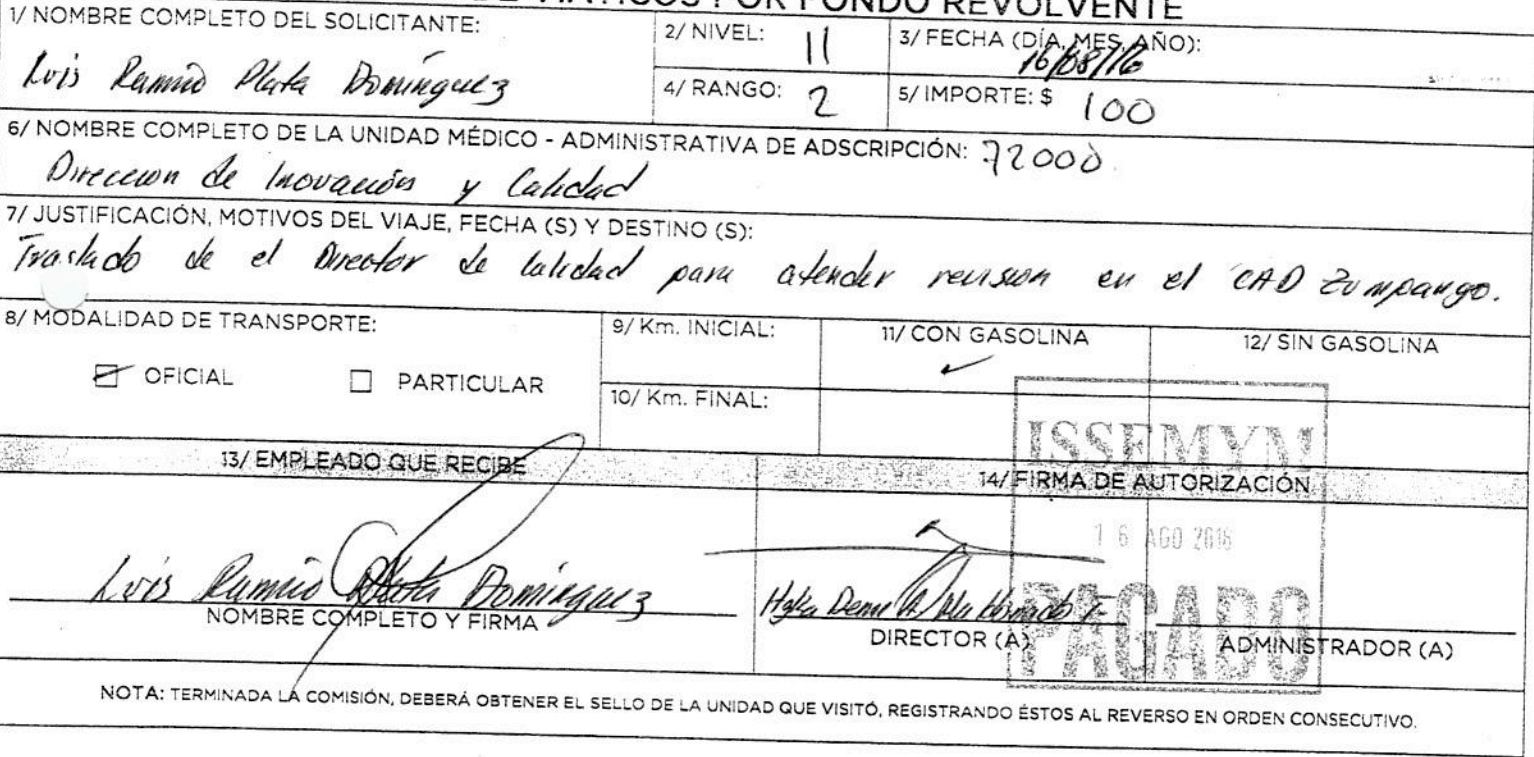 DE VIATICOS POR FONDO REVOLVENTE
1/ NOMBRE COMPLETO DEL SOLICITANTE:
Luis Ramiro Plata Domínguez
2/ NIVEL: 11
3/ FECHA (DÍA, MES, AÑO):
16/08/16
4/ RANGO: 2
5/ IMPORTE: $ 100
6/ NOMBRE COMPLETO DE LA UNIDAD MÉDICO - ADMINISTRATIVA DE ADSCRIPCIÓN: 72000
Direccion de Inovación y Calidad
7/ JUSTIFICACIÓN, MOTIVOS DEL VIAJE, FECHA (S) Y DESTINO (S):
Traslado de el Director de Calidad para atender revision en el CAD Zumpango.
8/ MODALIDAD DE TRANSPORTE:
OFICIAL
PARTICULAR
9/ Km. INICIAL:
10/ Km. FINAL:
11/ CON GASOLINA
12/ SIN GASOLINA
13/ EMPLEADO QUE RECIBE
14/ FIRMA DE AUTORIZACIÓN
ISSEMYM
16 AGO 2016
PAGADO
Luis Ramiro Plata Dominguez
NOMBRE COMPLETO Y FIRMA
DIRECTOR (A)
ADMINISTRADOR (A)
NOTA: TERMINADA LA COMISIÓN, DEBERÁ OBTENER EL SELLO DE LA UNIDAD QUE VISITÓ, REGISTRANDO ÉSTOS AL REVERSO EN ORDEN CONSECUTIVO.